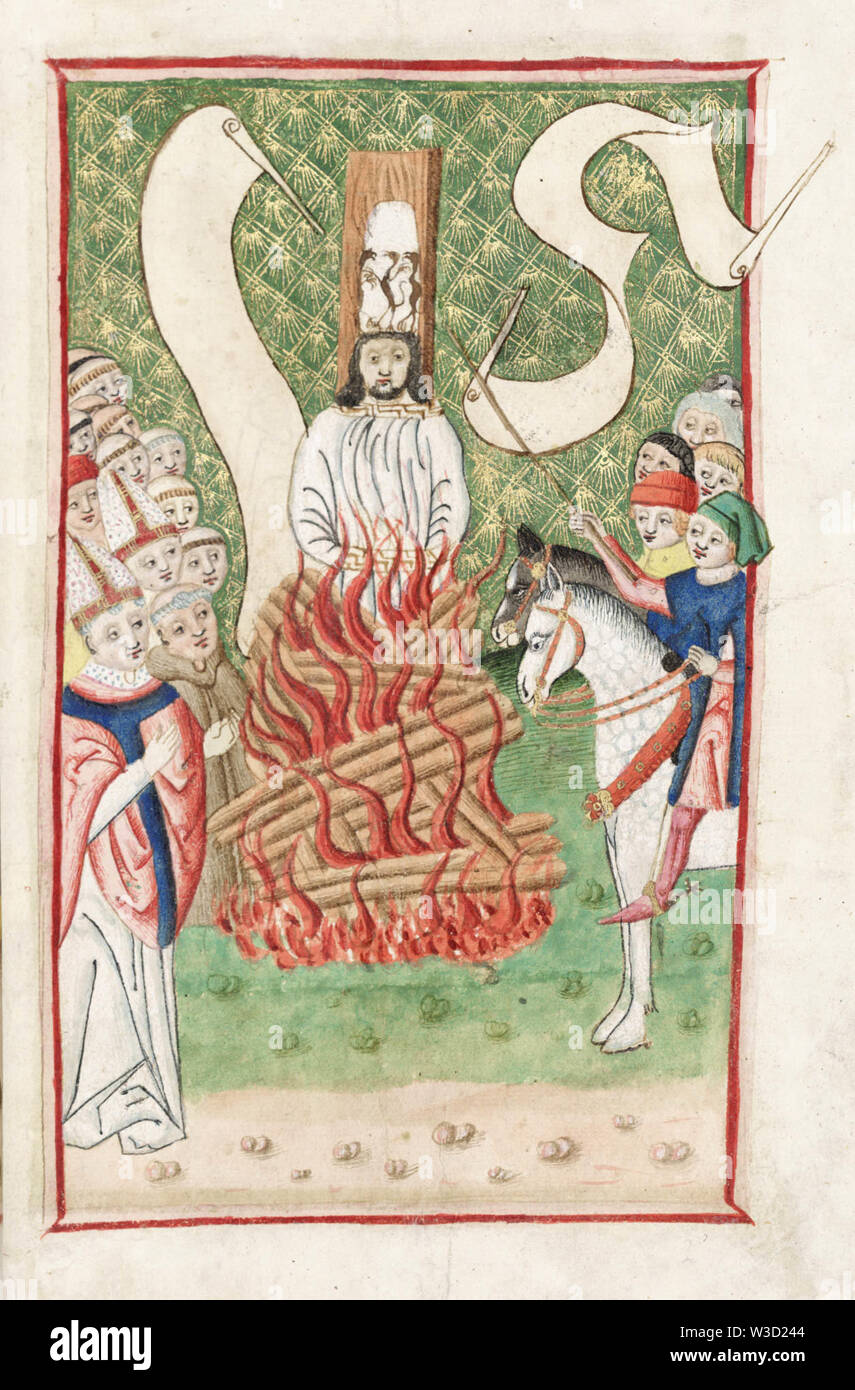 alamy
Image ID: W3D244
www.alamy.com